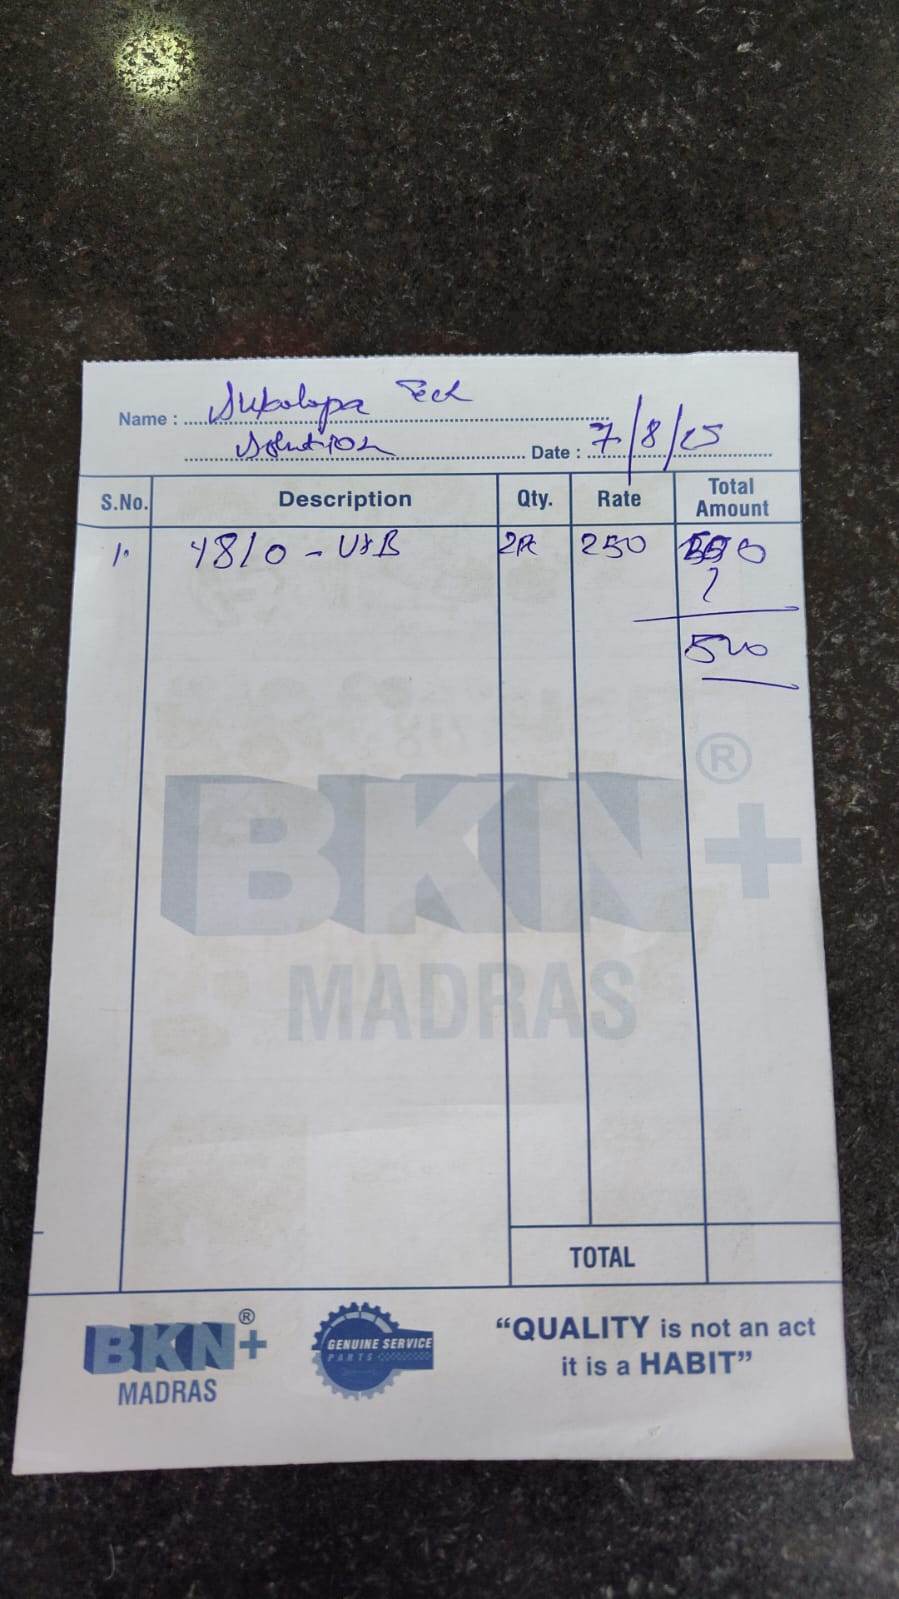 Name : Tech
Solution Date : 7/8/25
S.No. Description Qty. Rate Total Amount
1. 4810 - 250
500
BKN+ ®
MADRAS
TOTAL
BKN+ ®
MADRAS
GENUINE SERVICE
PARTS
“QUALITY is not an act
it is a HABIT”